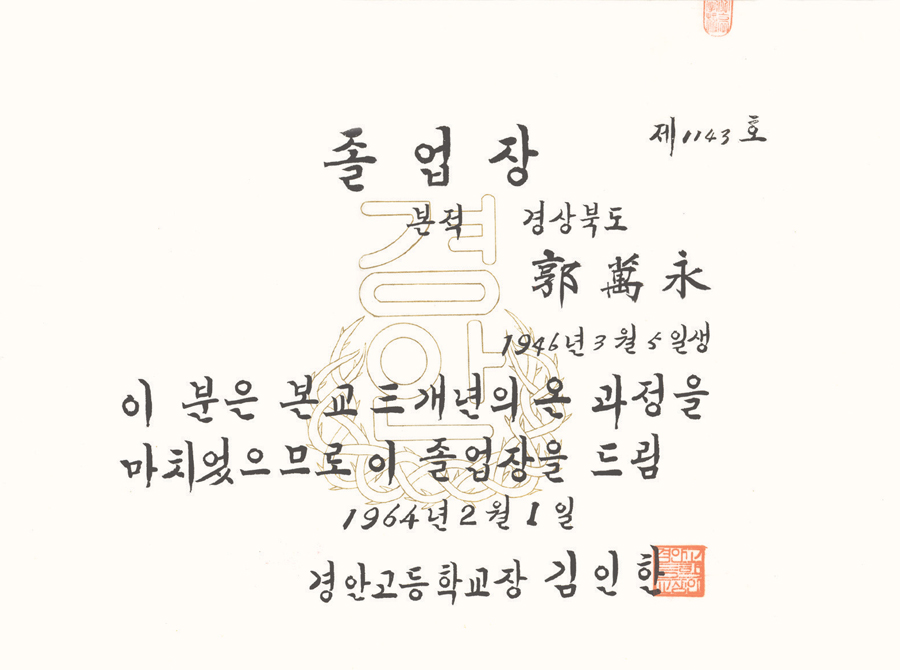 제1143호
졸업장
본적 경상북도
郭萬永
1946년3월5일생
이 분은 본교 三개년의 온 과정을
마치었으므로 이 졸업장을 드림
1964년2월1일
경안고등학교장 김인한
경안